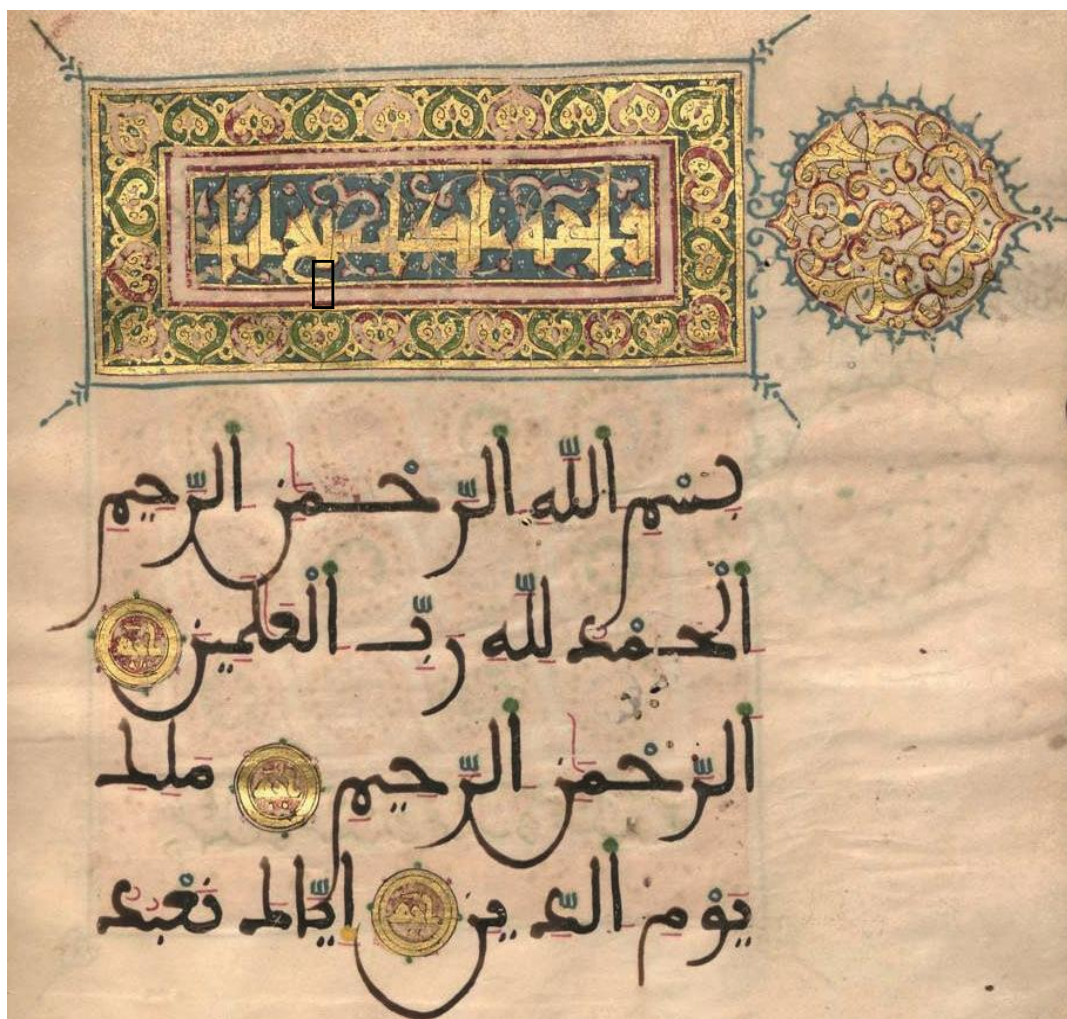 بِسْمِ اللَّهِ الرَّحْمَٰنِ الرَّحِيمِ
الْحَمْدُ لِلَّهِ رَبِّ الْعَٰلَمِينَ
الرَّحْمَٰنِ الرَّحِيمِ مَلِكِ
يَوْمِ الدِّينِ إِيَّاكَ نَعْبُدُ